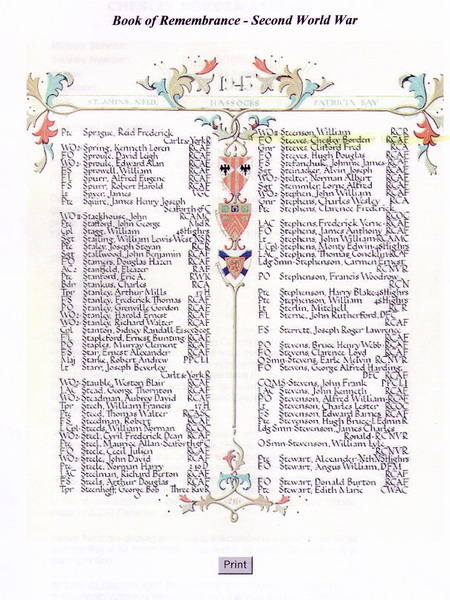 Book of Remembrance - Second World War
1945
ST. JOHNS, NFLD.
HASSOCKS
PATRICIA BAY
Pte Sprague, Raid Frederick
Carlt&YorkR
WO2 Spring, Kenneth Loren RCAF
FO Sproule, David Leigh RCAF
WO2 Sproule, Edward Alan RCAF
FS Sprowell, William RCAF
FO Spurr, Alfred Eugene RCAF
FS Spurr, Robert Harold RCAF
Lt Spyer, James
Pte Squire, James Henry Joseph
SeaforthofC
WO2 Stackhouse, John RCAMC
Pte Stafford, John George
Pte Stagg, William 48Highrs
Sgt Stailing, William Lewis
Pte Staley, Joseph Steyan RCR
Sgt Stallwood, John Benjamin
FL Stamers, Douglas Hazen RCAF
AC2 Stanfield, Eleazer RAF
Pte Stanford, Eric A. RWK
Bdr Stankus, Charles RCA
Tpr Stanley, Arthur Mills 17H
FS Stanley, Frederick Thomas RCAF
FS Stanley, Grenville Gordon RCAF
WO2 Stanley, Harold Ernest RCAF
WO2 Stanley, Richard Walter RCAF
Cpl Stanton, Sidney Randall
FL Stapleford, Ernest Bunting RCAF
FS Staples, Murray Clement RCAF
FS Star, Ernest Alexander RCAF
Maj Starke, Robert Andrew PPCLI
Lt Starr, Joseph Beverley
Carlt&YorkR
WO2 Stauble, Weston Blair RCAF
AC Stead, George Thornton RCAF
WO2 Steadman, Aubrey David RCAF
Tpr Stech, William Francis 17H
Pte Steed, Thomas Walter RCAF
FS Steedman, Robert RCAF
LCpl Steedman, William Norman RCE
WO2 Steel, Cyril Frederick Dean RCAF
Pte Steel, Maurice Allan SeaforthofC
FO Steele, Cecil Julien RCAF
WO2 Steele, John David RCAF
Pte Steele, Norman Harry
AC Steelman, Richard Berton RCAF
FS Steels, Arthur Douglas RCAF
Tpr Steenhoff, George Bob ThreeRivR
WO2 Steenson, William RCR
FO Steeves, Chesley Borden RCAF
Gnr Steeves, Clifford Fred RCA
FO Steeves, Hugh Douglas RCAF
FS Stefanchuk, Johnnie James RCAF
Sgt Steinacker, Alvin Joseph RCAF
WO2 Stelter, Norman Albert RCAF
Sgt Stemmler, Lorne Alfred RCAF
WO2 Stephen, John William RCAF
Gnr Stephens, Charles Wesley RCA
Pte Stephens, Clarence Frederick
RCOC
LAC Stephens, Frederick Verne RCAF
FO Stephens, James Anthony RCAF
Lt Stephens, John William RCAMC
LCpl Stephens, Monty Edwin 48Highrs
LAC Stephens, Thomas Concklin RCAF
LdgSmn Stephenson, Carmen Ernest
RCNVR
PO Stephenson, Francis Woodrow
RCN
Pte Stephenson, Harry Blake 48Highrs
Pte Stephenson, William 48Highrs
Lt Sterlin, Mitchell RCR
FL Sterne, John Rutherford, DFC
RCAF
FS Sterrett, Joseph Roger Lawrence
RCAF
PO Stevens, Bruce Henry Webb RCAF
FO Stevens, Clarence Loyd RCAF
OSmn Stevens, Earle Melvin RCNVR
FO Stevens, George Alfred Harding,
DFC RCAF
CQMS Stevens, John Frank PPCLI
FO Stevens, John Kenneth RCAF
FO Stevenson, Alfred William RCAF
Lt Stevenson, Charles Lester RCOC
FS Stevenson, Edward Barnes RCAF
Pte Stevenson, Hugh Bruce
LdgSmn Stevenson, James Charles
Ronald RCNVR
OSmn Stevenson, William Lyle
RCNVR
Pte Stewart, Alexander 48Highrs
FO Stewart, Angus William, DFM
RCAF
FO Stewart, Donald Burton RCAF
Pte Stewart, Edith Marie CWAC
Print